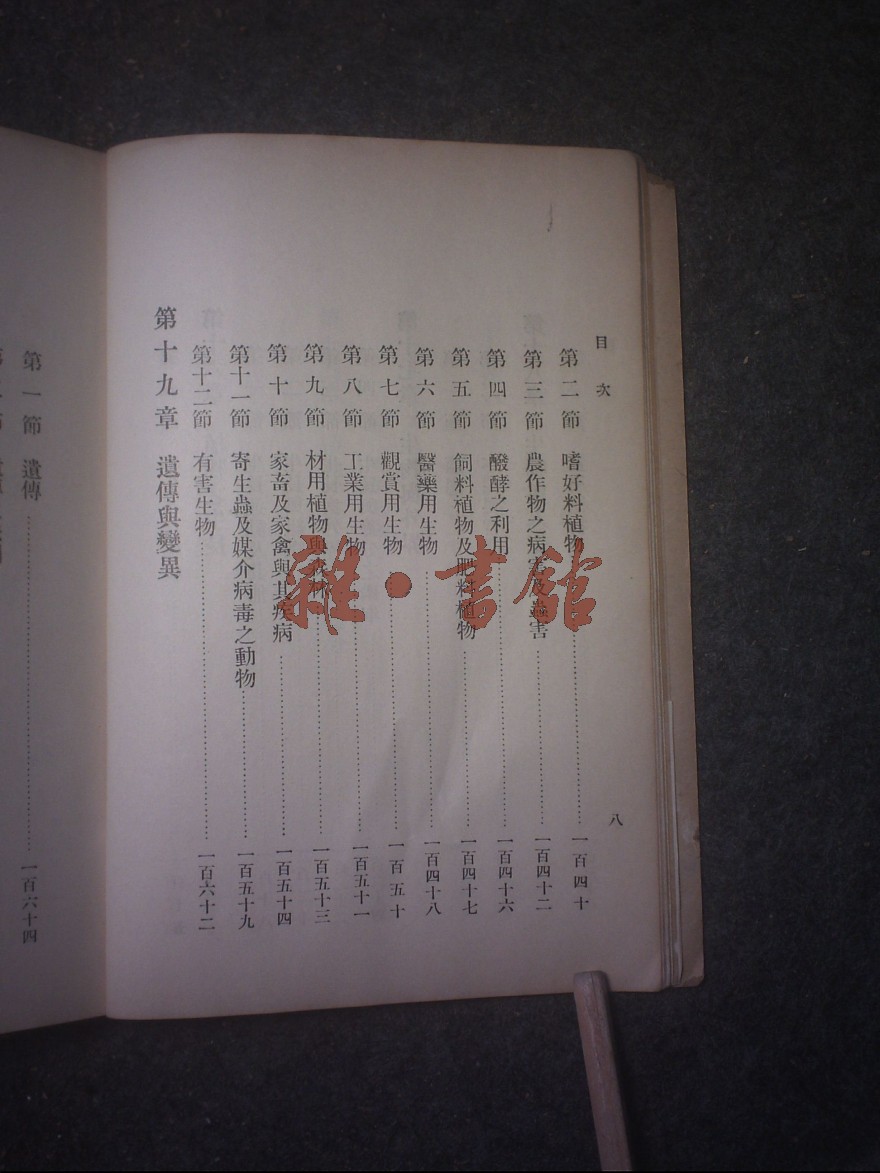 目次
八
第二節 嗜好料植物……一百四十
第三節 農作物之病害及蟲害……一百四十二
第四節 醱酵之利用……一百四十六
第五節 飼料植物及肥料植物……一百四十七
第六節 醫藥用生物……一百四十八
第七節 觀賞用生物……一百五十
第八節 工業用生物……一百五十一
第九節 材用植物與森林……一百五十三
第十節 家畜及家禽與其疾病……一百五十四
第十一節 寄生蟲及媒介病毒之動物……一百五十九
第十二節 有害生物……一百六十二
第十九章 遺傳與變異
第一節 遺傳……一百六十四
雜·書館